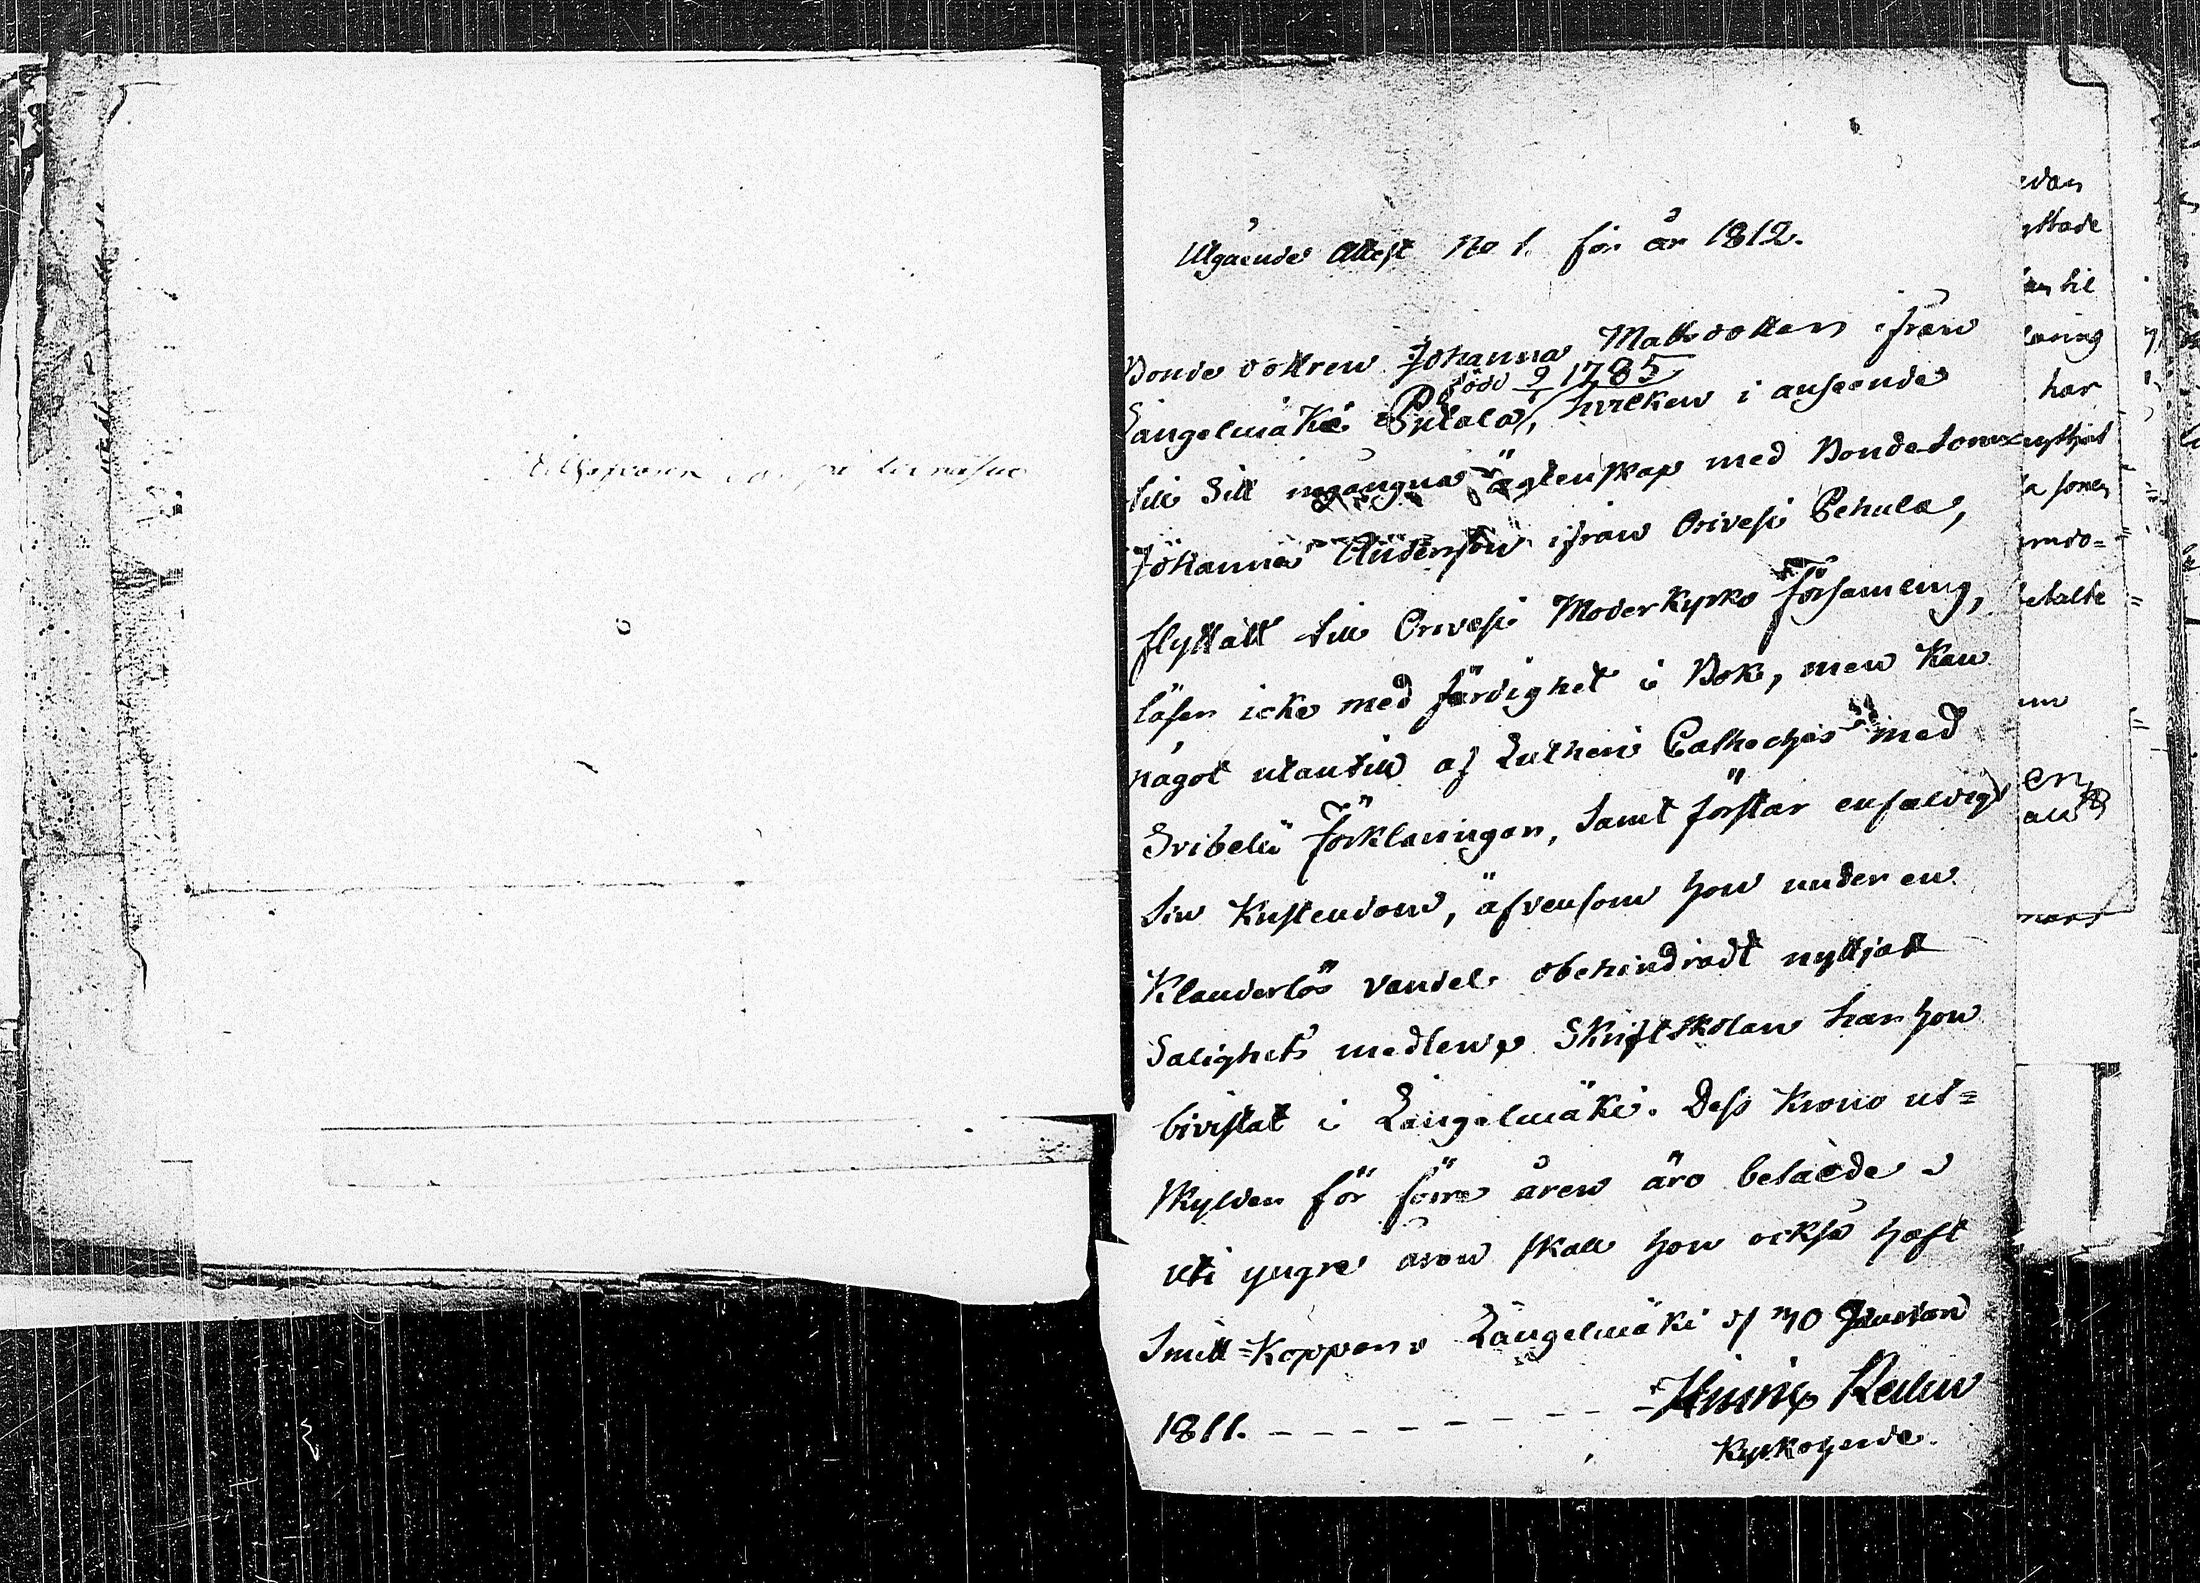 Utgående Attest No 1. för år 1812.
Bonde dottren Johanna Matts dotter ifrån
född 9/1 1785
Längelmäki Puttala, hvilken i anseende
till sitt ingångna ägtenskap med Bondesonen
Johannes Andersson ifrån Orivesi Pehula,
flyttatt till Orivesi Moderkyrko Församling,
läser icke med färdighet i Bok, men kan
något utantill af Lutheri Cathechis med
Svibelii Förklaringar, samt förstår enfaldigt
sin Kristendom, äfvensom hon under en
Klanderlös vandel obehindradt nyttjatt
Salighets medlen. Skriftskolan har hon
bivistat i Längelmäki. Dess Krono ut=
skylder för förre åren äro betalde
uti yngre åren skall hon också haft
Smitt=Koppor. Längelmäki d 30 Januari
1811. - - - - - - - - Henric
Kyrkoherde.
vdan
yttade
til
har
nyttjat
a sonen
mdo=
etalte
en